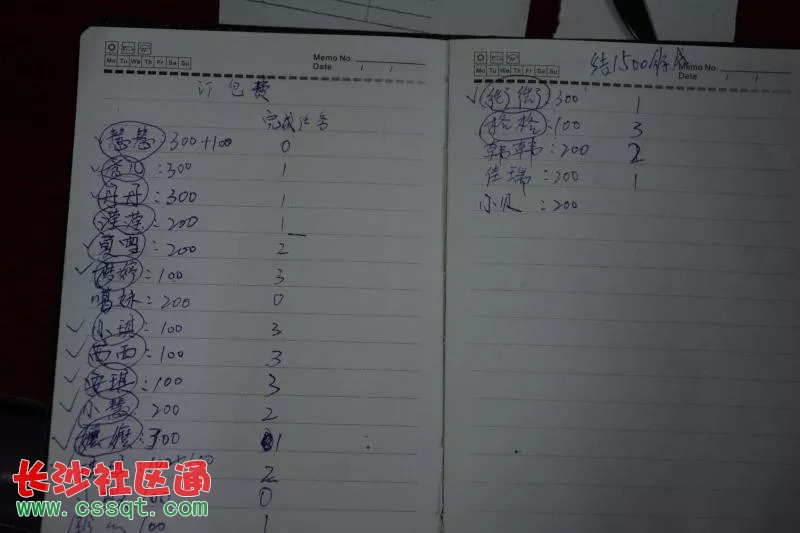 Memo No.
Mo Tu We Th Fr Sa Su
Date / /
订包费
完成任务
慧慧:300+100 0
亮儿:300 1
丹丹:300 1
滢滢:200 1
夏雪:200 2
婷:100 3
妹:200 0
小琪:100 3
西西:100 3
安琪:100 3
小慧 200 2
:300 1
2
0
100 1
Memo No.
Mo Tu We Th Fr Sa Su
Date / /
结1500
佳佳:300 1
格格:100 3
韩韩:200 2
佳瑞:200 1
小贝:200
长沙社区通
www.cssqt.com